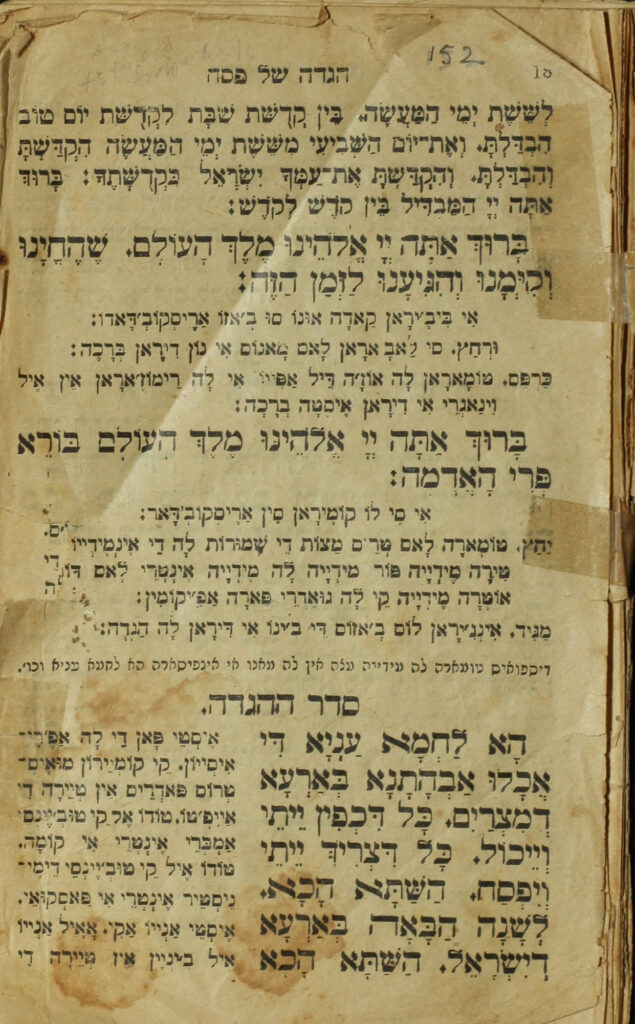 18
152
הגדה של פסח
לְשֵׁשֶׁת יְמֵי הַמַּעֲשֶׂה. בֵּין קְדֻשַּׁת שַׁבָּת לִקְדֻשַּׁת יוֹם טוֹב
הִבְדַּלְתָּ. וְאֶת־יוֹם הַשְּׁבִיעִי מִשֵּׁשֶׁת יְמֵי הַמַּעֲשֶׂה הִקְדַּשְׁתָּ
וְהִבְדַּלְתָּ. וְהִקְדַּשְׁתָּ אֶת־עַמְּךָ יִשְׂרָאֵל בִּקְדֻשָּׁתֶךָ: בָּרוּךְ
אַתָּה יְיָ הַמַּבְדִּיל בֵּין קֹדֶשׁ לְקֹדֶשׁ:
בָּרוּךְ אַתָּה יְיָ אֱלֹהֵינוּ מֶלֶךְ הָעוֹלָם. שֶׁהֶחֱיָנוּ
וְקִיְּמָנוּ וְהִגִּיעָנוּ לַזְּמַן הַזֶּה:
אי ביב׳יראן קאדה אונו סו ב׳אזו אריסקוב׳דאדו:
ורחץ. סי לאב׳אראן לאס מאנוס אי נון דיראן ברכה:
כרפס. טומאראן לה אוז׳ה דיל אפייו אי לה רימוז׳אראן אין איל
וינאגרי אי דיראן איסטה ברכה:
בָּרוּךְ אַתָּה יְיָ אֱלֹהֵינוּ מֶלֶךְ הָעוֹלָם בּוֹרֵא
פְּרִי הָאֲדָמָה:
אי סי לו קומיראן סין אריסקוב׳דאר:
יחץ. טומארה לאס טריס מצות די שמורות לה די אינמידייו
טירה מידייה פור מידייה לה מידייה אינטרי לאס דוס
אוטרה מידייה קי לה גואדרי פארה אפ׳יקומין:
מגיד. אינג׳יראן לוס ב׳אזוס די ב׳ינו אי דיראן לה הגדה:
דיספואיס טומארה לה עידייה עלה אין לה מאנו אי אינפיסארה הא לחמא עניא וכו׳.
סדר ההגדה.
הָא לַחְמָא עַנְיָא דִי
אֲכָלוּ אַבְהָתָנָא בְּאַרְעָא
דְמִצְרַיִם. כָּל דִּכְפִין יֵיתֵי
וְיֵיכוֹל. כָּל דִּצְרִיךְ יֵיתֵי
וְיִפְסַח. הַשַּׁתָּא הָכָא.
לְשָׁנָה הַבָּאָה בְּאַרְעָא
דְיִשְׂרָאֵל. הַשַּׁתָּא הָכָא
איסטי פאן די לה אפרי־
איסייון. קי קומיירון מואיס־
טרוס פאדרים אין טיירה די
אייפ׳טו. טודו אל קי טוב׳יינס
אמברי אינטרי אי קומה.
טודו איל קי טוב׳יינסי דימי־
ניסטיר אינטרי אי פאסקואי.
איסטי אנייו אקי. אאיל אנייו
איל ב׳יניין אין טיירה די